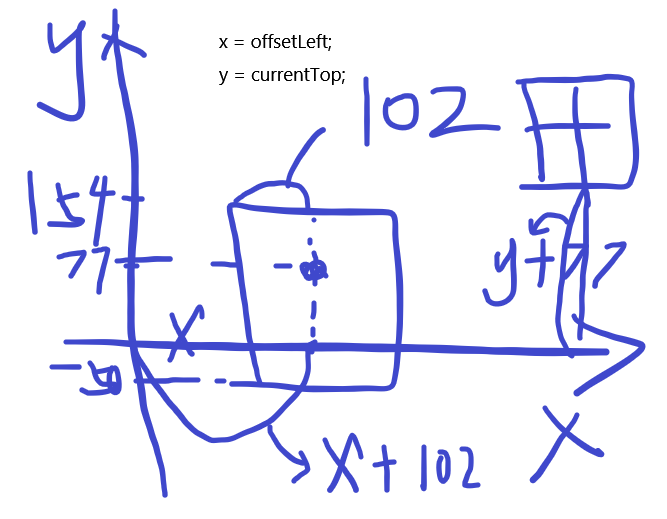 y
x = offsetLeft;
y = currentTop;
102
154
77
y+77
x
-50
x+102
x